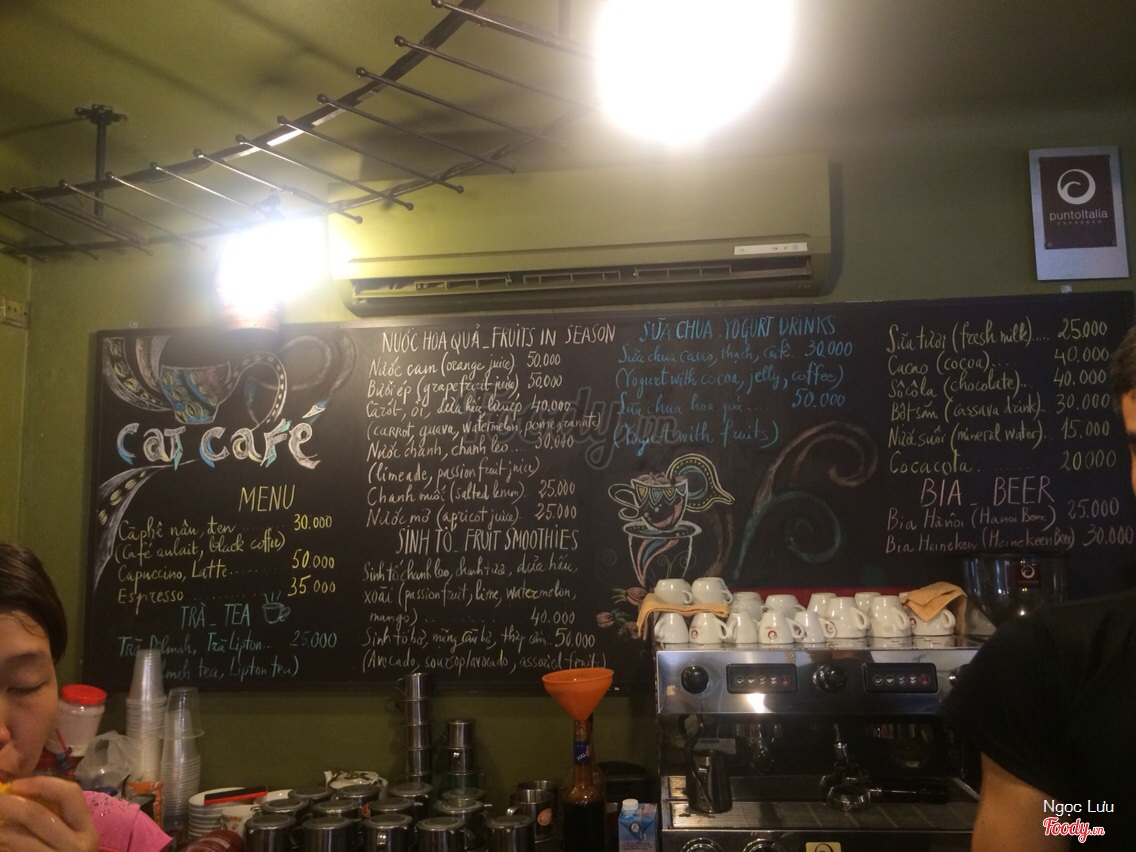 puntoItalia
ESPRESSO
cat café
MENU
Càphê nâu, đen..... 30.000
(Café aulait, black coffee)
Capuccino, Latte........ 50.000
Espresso............ 35.000
TRÀ_TEA
Trà Dilmah, Trà Lipton.. 25.000
tea, Lipton tea)
NƯỚC HOA QUẢ_FRUITS IN SEASON
Nước cam (orange juice) 50.000
Bưởi ép (grapefruit juice) 50.000
Cà rốt, ổi, dưa hấu, 40.000
(carrot, guava, watermelon, pomegranate)
Nước chanh, chanh leo... 30.000
(limeade, passion fruit juice)
Chanh muối (salted lemon). 25.000
Nước mơ (apricot juice). 25.000
SINH TỐ_FRUIT SMOOTHIES
Sinh tố chanh leo, chanh tươi, dưa hấu,
xoài (passionfruit, lime, watermelon,
mango) ........ 40.000
Sinh tố bơ, mãng cầu bơ, thập cẩm. 50.000
(Avocado, soursop/avocado, fruit)
SỮA CHUA_YOGURT DRINKS
Sữa chua cacao, thạch, cafê.. 30.000
(Yogurt with cocoa, jelly, coffee)
Sữa chua hoa quả..... 50.000
(Yogurt with fruits)
Sữa tươi (fresh milk)... 25.000
Cacao (cocoa)... 40.000
Sôcôla (chocolate)... 40.000
Bột sắn (cassava drink).. 30.000
Nước suối (mineral water). 15.000
Cocacola......... 20.000
BIA_BEER
Bia Hànội (Hanoi Beer) 25.000
Bia Heineken (Heineken Beer) 30.000
Foody.vn
Ngọc Lưu
Foody.vn